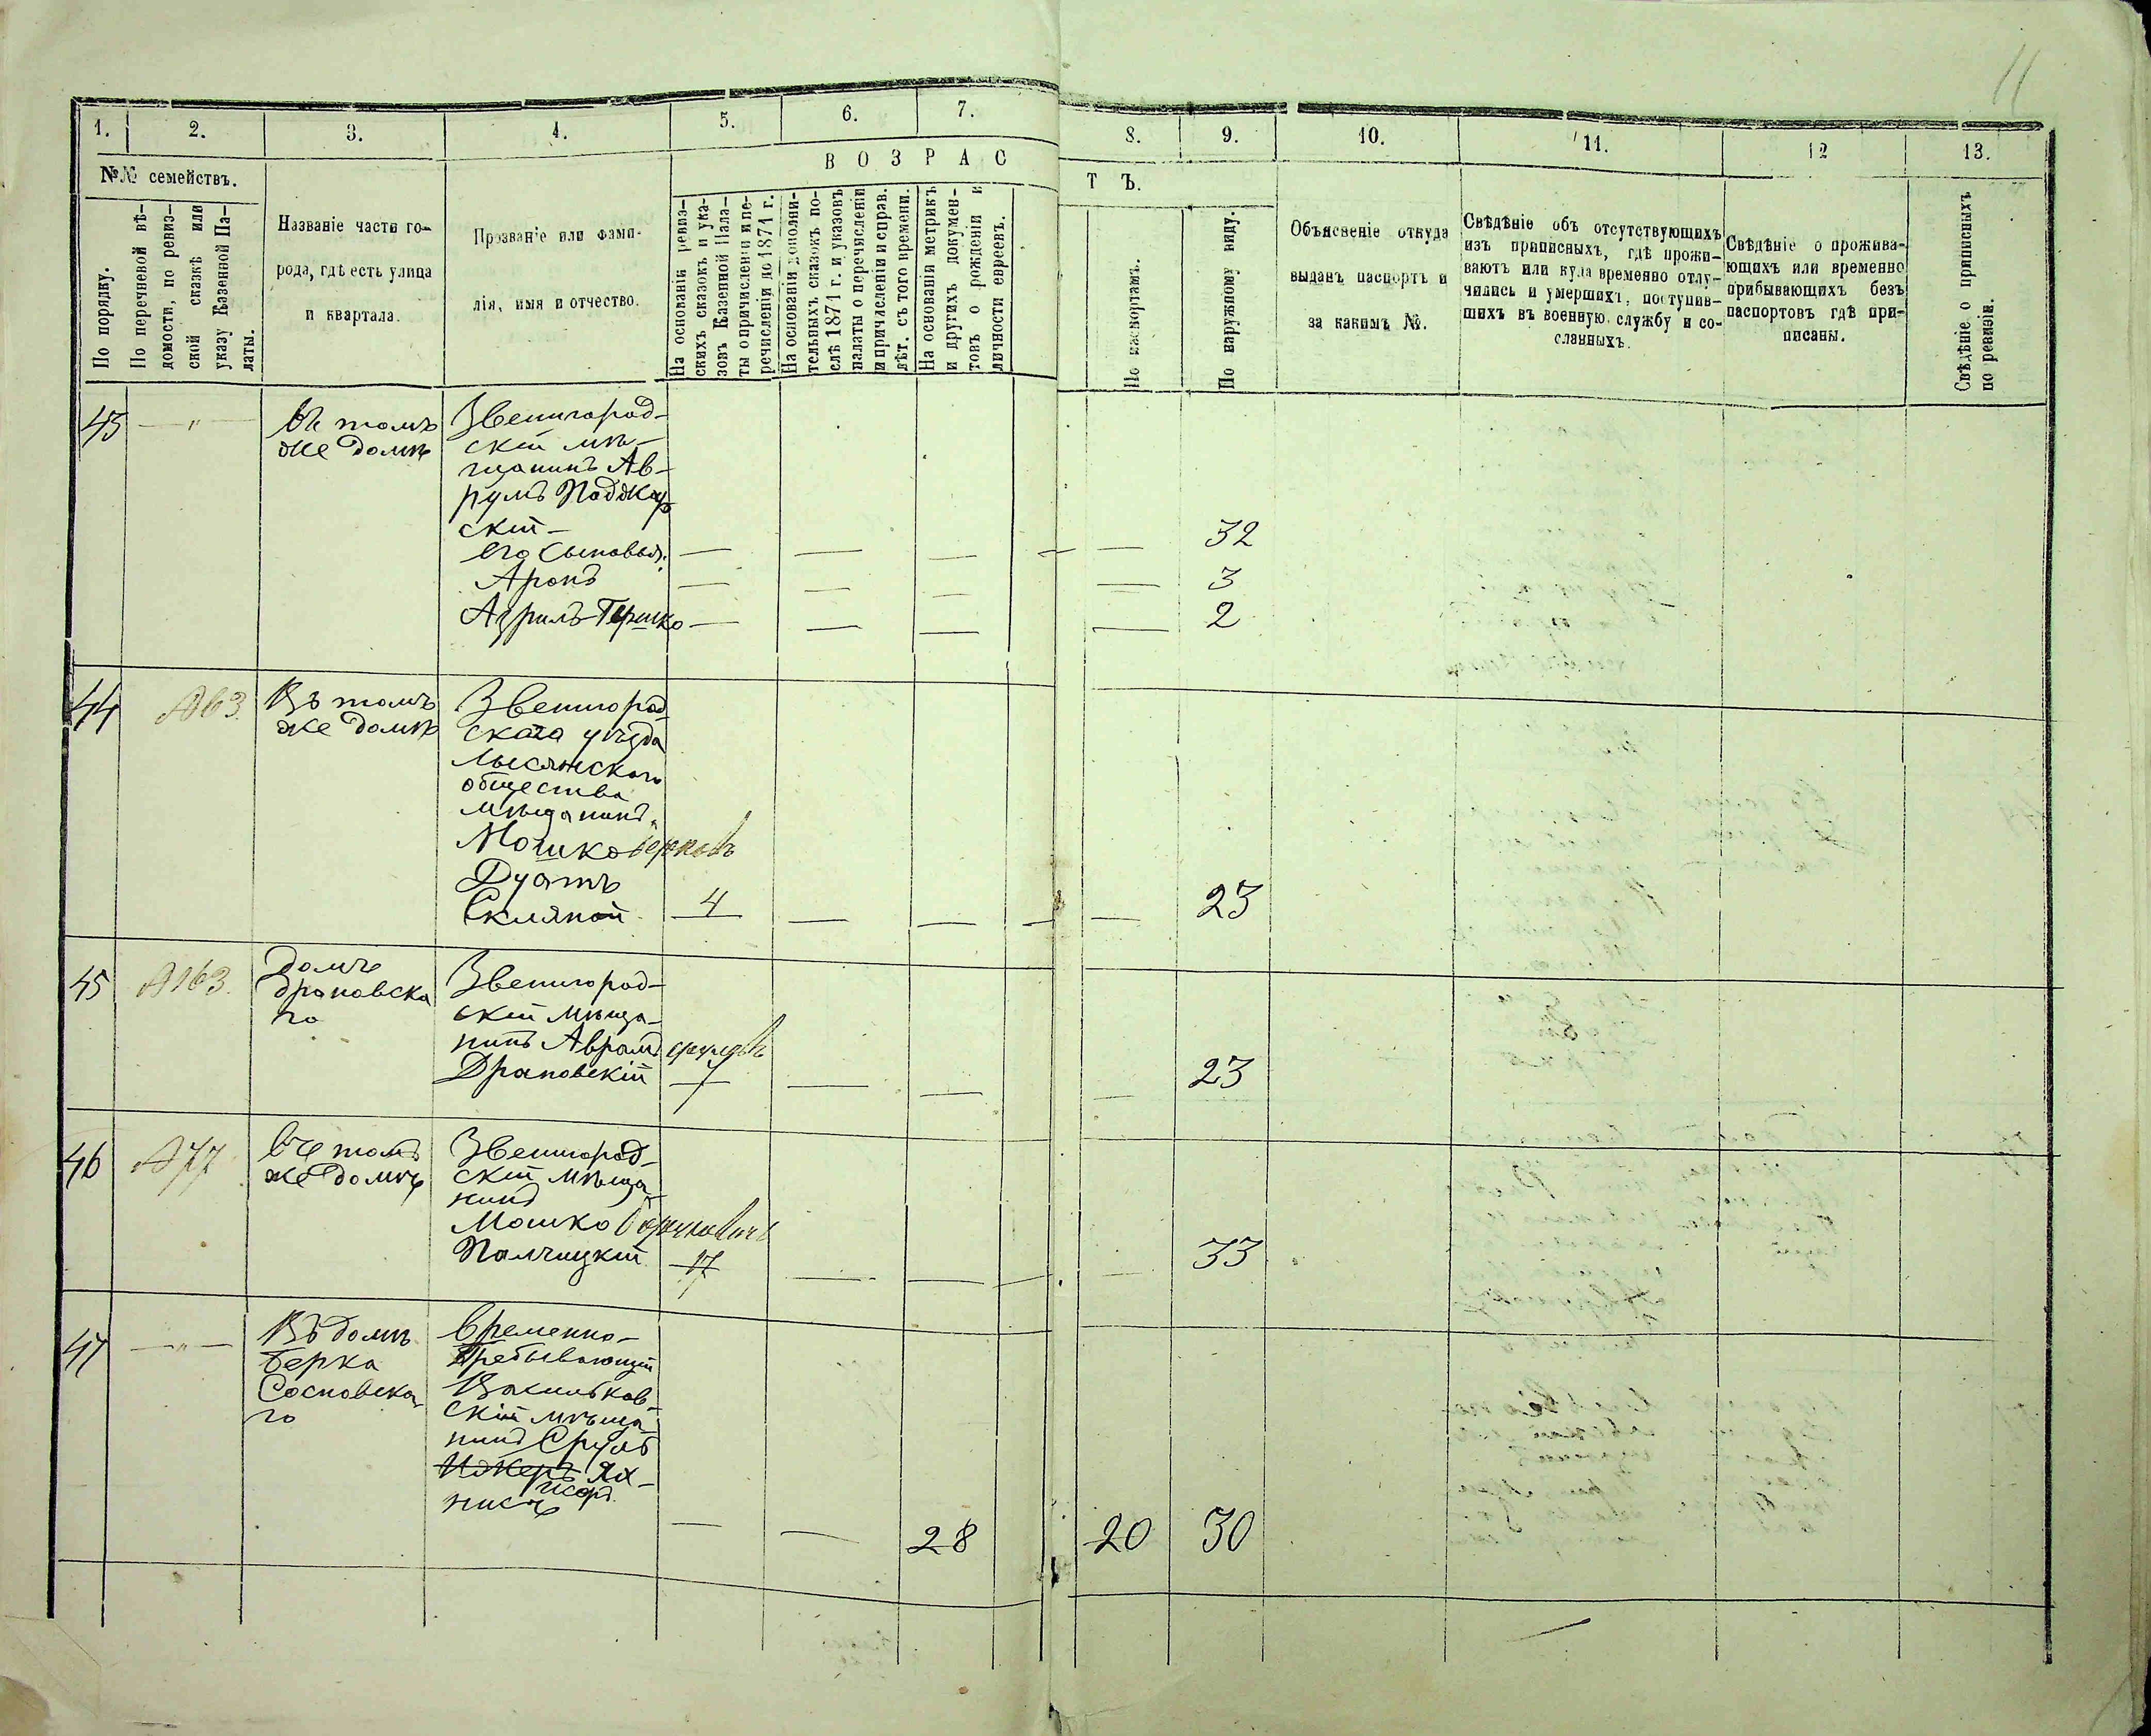 11
1. 2. 3. 4. 5. 6. 7. 8. 9. 10. 11. 12 13.
№№ семействъ.
По порядку.
По перечневой вѣ-
домости, по ревиз-
ской сказкѣ или
указу Казенной Па-
латы.
Названіе части го-
рода, гдѣ есть улица
и квартала.
Прозваніе или фами-
лія, имя и отчество.
ВОЗРАС
ТЪ.
На основаніи ревиз-
скихъ сказокъ и ука-
зовъ Казенной Пала-
ты о причисленіи и пе-
речисленіи до 1871 г.
На основаніи дополни-
тельныхъ сказокъ по-
слѣ 1871 г. и указовъ
палаты о перечисленіи
и причисленіи и справ.
лѣт. съ того времени.
На основаніи метрикъ
и другихъ докумен-
товъ о рожденіи и
личности евреевъ.
По паспортамъ.
По наружному виду.
Объясненіе откуда
выданъ паспортъ и
за какимъ №.
Свѣдѣніе объ отсутствующихъ
изъ приписныхъ, гдѣ прожи-
ваютъ или куда временно отлу-
чились и умершихъ, поступив-
шихъ въ военную службу и со-
сланныхъ.
Свѣдѣніе о прожива-
ющихъ или временно
прибывающихъ безъ
паспортовъ гдѣ при-
писаны.
Свѣдѣніе о приписныхъ
по ревизіи.
43 — " —
Въ томъ
же домѣ
Звенигород-
скій мѣ-
щанинъ Ав-
румъ
скій —
его сыновья: — — — — 32
Аронъ — — — — 3
Азрилъ-Гершко — — — — 2
44 № 63.
Въ томъ
же домѣ
Звенигород-
скаго уѣзда
Лысянского
общества
мѣщанинъ
Мошко Берковъ
Дуатъ
Скляной 4 — — — 23
45 № 163.
домъ
Драновска
го
Звенигород-
скій мѣща-
нинъ Аврамъ Срулевъ
Драновскій 7 — — — 23
46 № 77
Въ томъ
же домѣ
Звенигород-
скій мѣща-
нинъ
Мошко
Палчицкій 17 — — — 33
47 — " —
Въ домѣ
Берка
Сосновска-
го
Временно-
Пребывающій
Васильков-
скій мѣща-
нинъ Сруль
Ях-
нисъ
— — 28 20 30